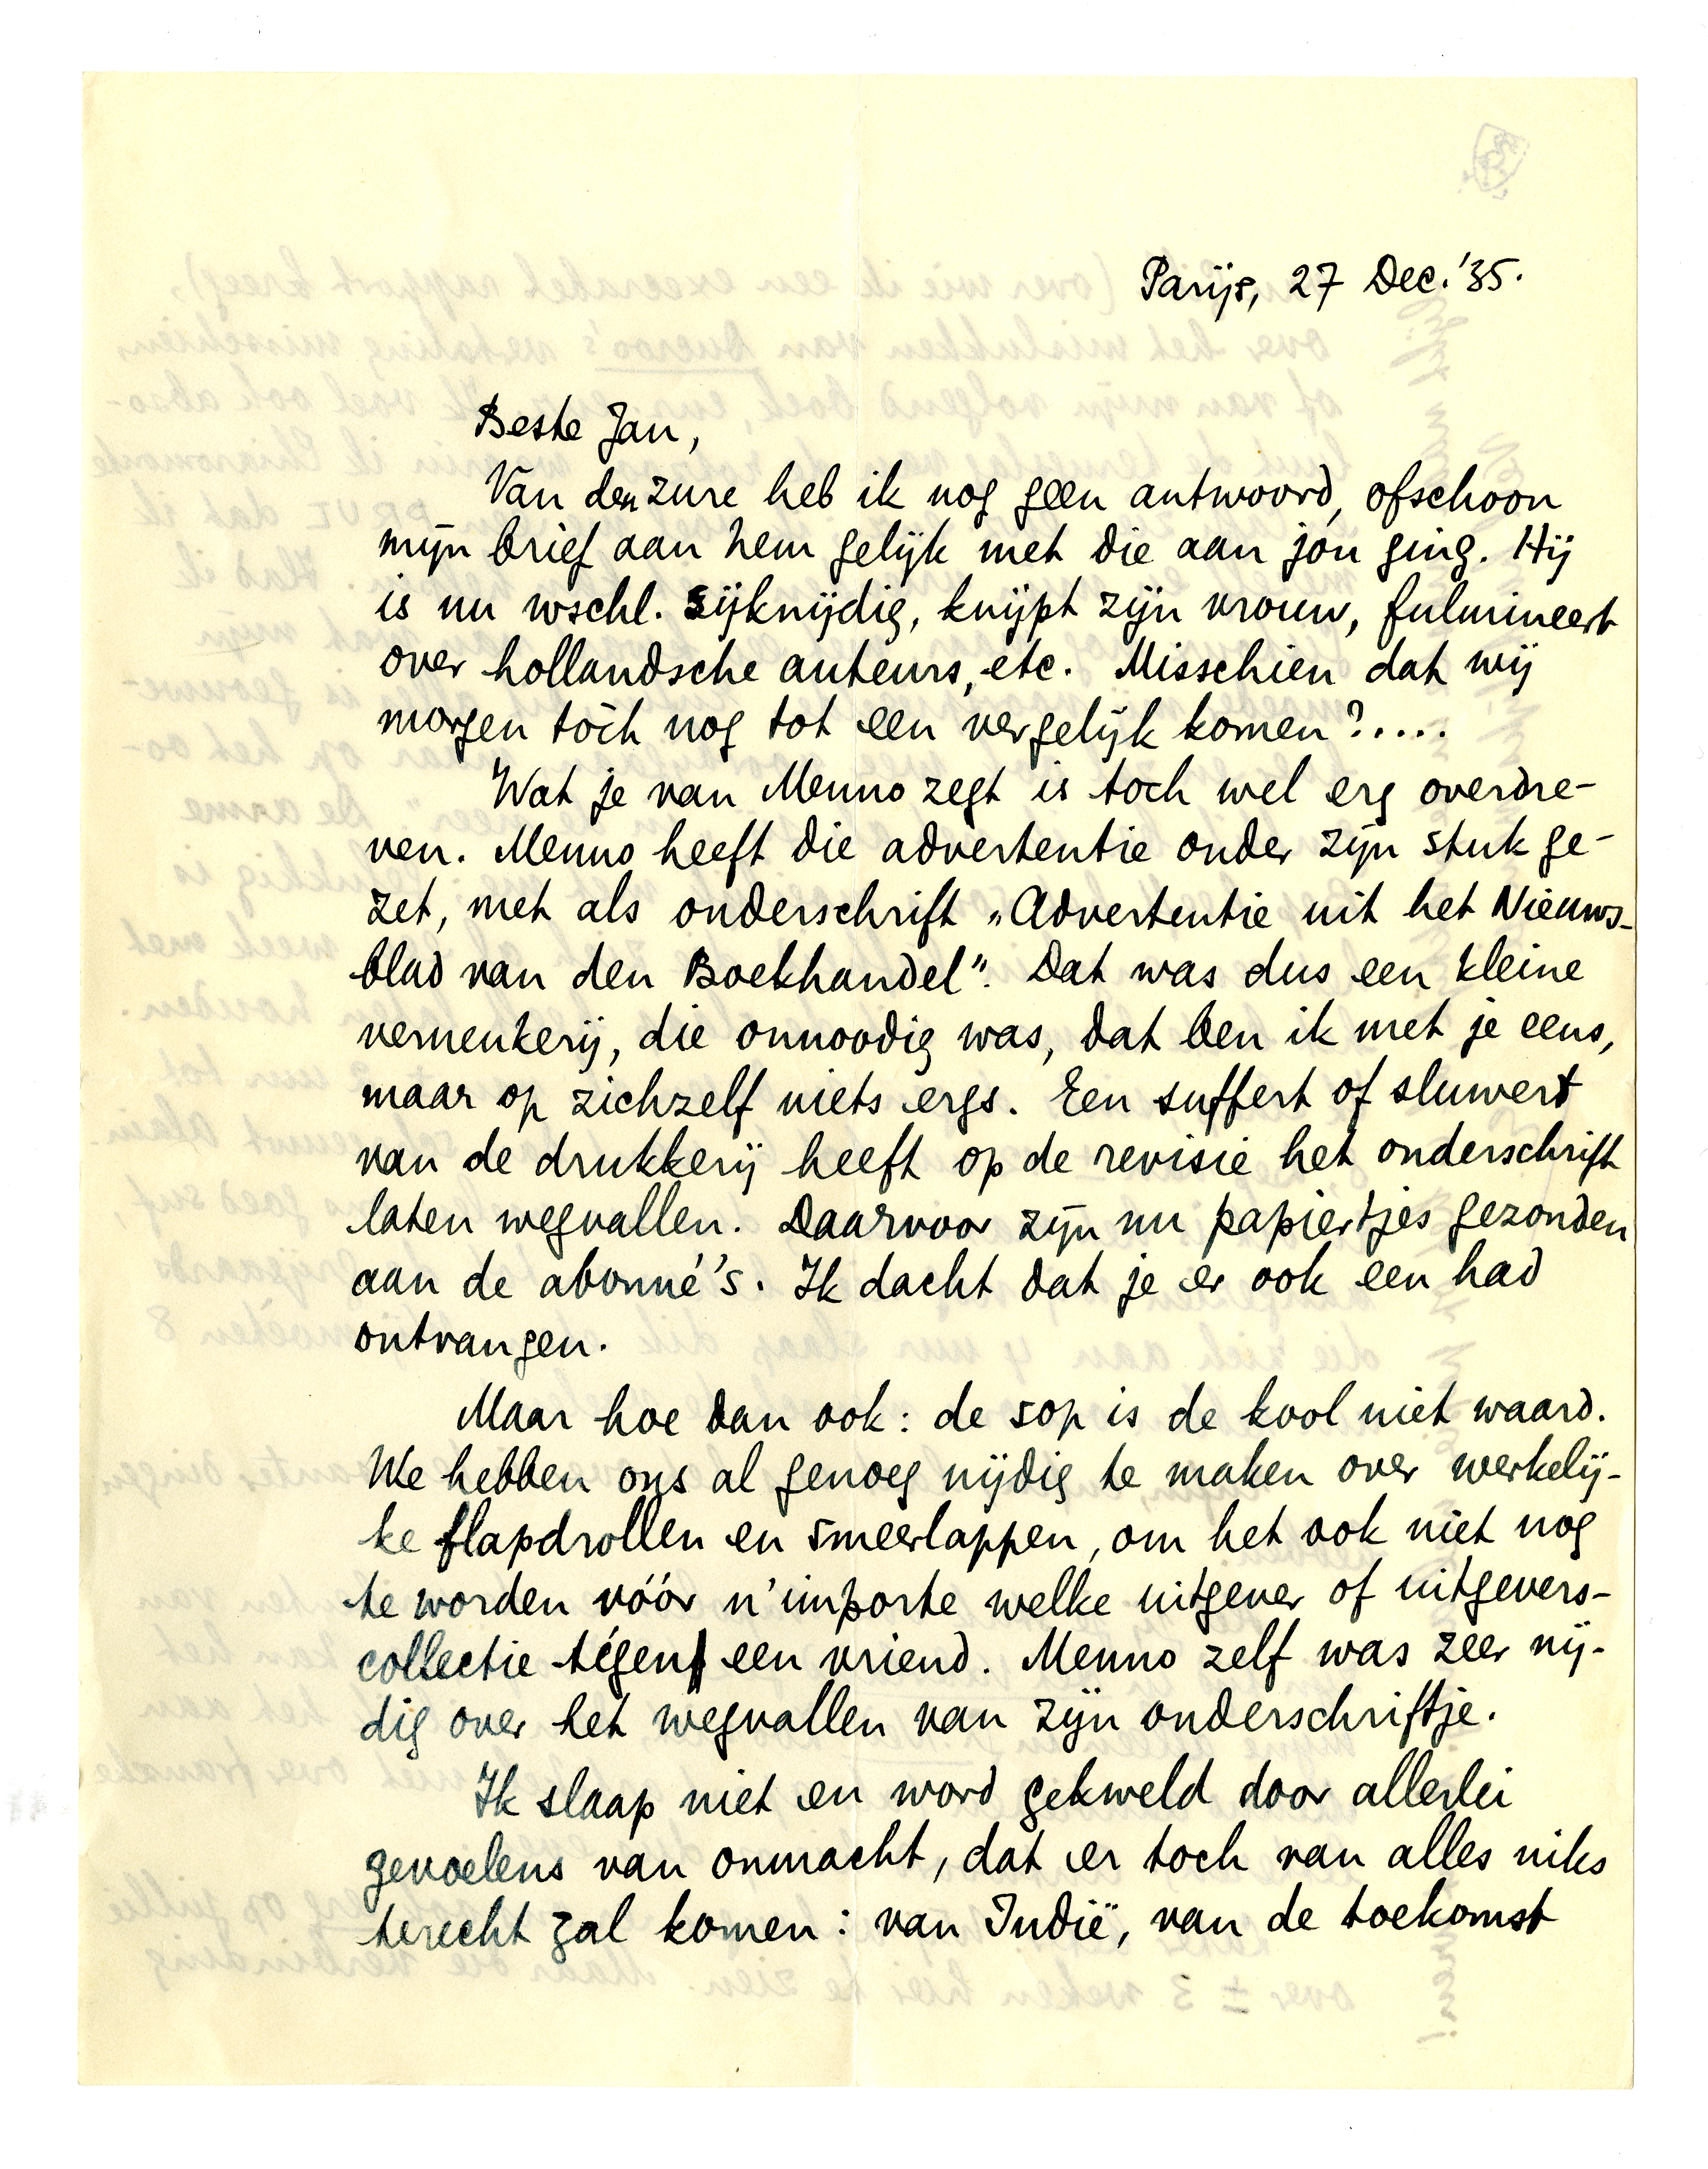 Parijs, 27 Dec. '35.
Beste Jan,
Van den zure heb ik nog geen antwoord, ofschoon
mijn brief aan hem gelijk met die aan jou ging. Hij
is nu wschl. sijknijdig, knijpt zijn vrouw, fulmineert
over hollandsche auteurs, etc. Misschien dat wij
morgen tòch nog tot een vergelijk komen?.....
Wat je van Menno zegt is toch wel erg overdre-
ven. Menno heeft die advertentie onder zijn stuk ge-
zet, met als onderschrift „Advertentie uit het Nieuws-
blad van den Boekhandel". Dat was dus een kleine
verneukerij, die onnoodig was, dat ben ik met je eens,
maar op zichzelf niets ergs. Een suffert of sluwert
van de drukkerij heeft op de revisie het onderschrift
laten wegvallen. Daarvoor zijn nu papiertjes gezonden
aan de abonné's. Ik dacht dat je er ook een had
ontvangen.
Maar hoe dan ook: de sop is de kool niet waard.
We hebben ons al genoeg nijdig te maken over werkelij-
ke flapdrollen en smeerlappen, om het ook niet nog
te worden vóór n'importe welke uitgever of uitgevers-
collectie tégen een vriend. Menno zelf was zeer nij-
dig over het wegvallen van zijn onderschriftje.
Ik slaap niet en word gekweld door allerlei
gevoelens van onmacht, dat er toch van alles niks
terecht zal komen: van Indië, van de toekomst